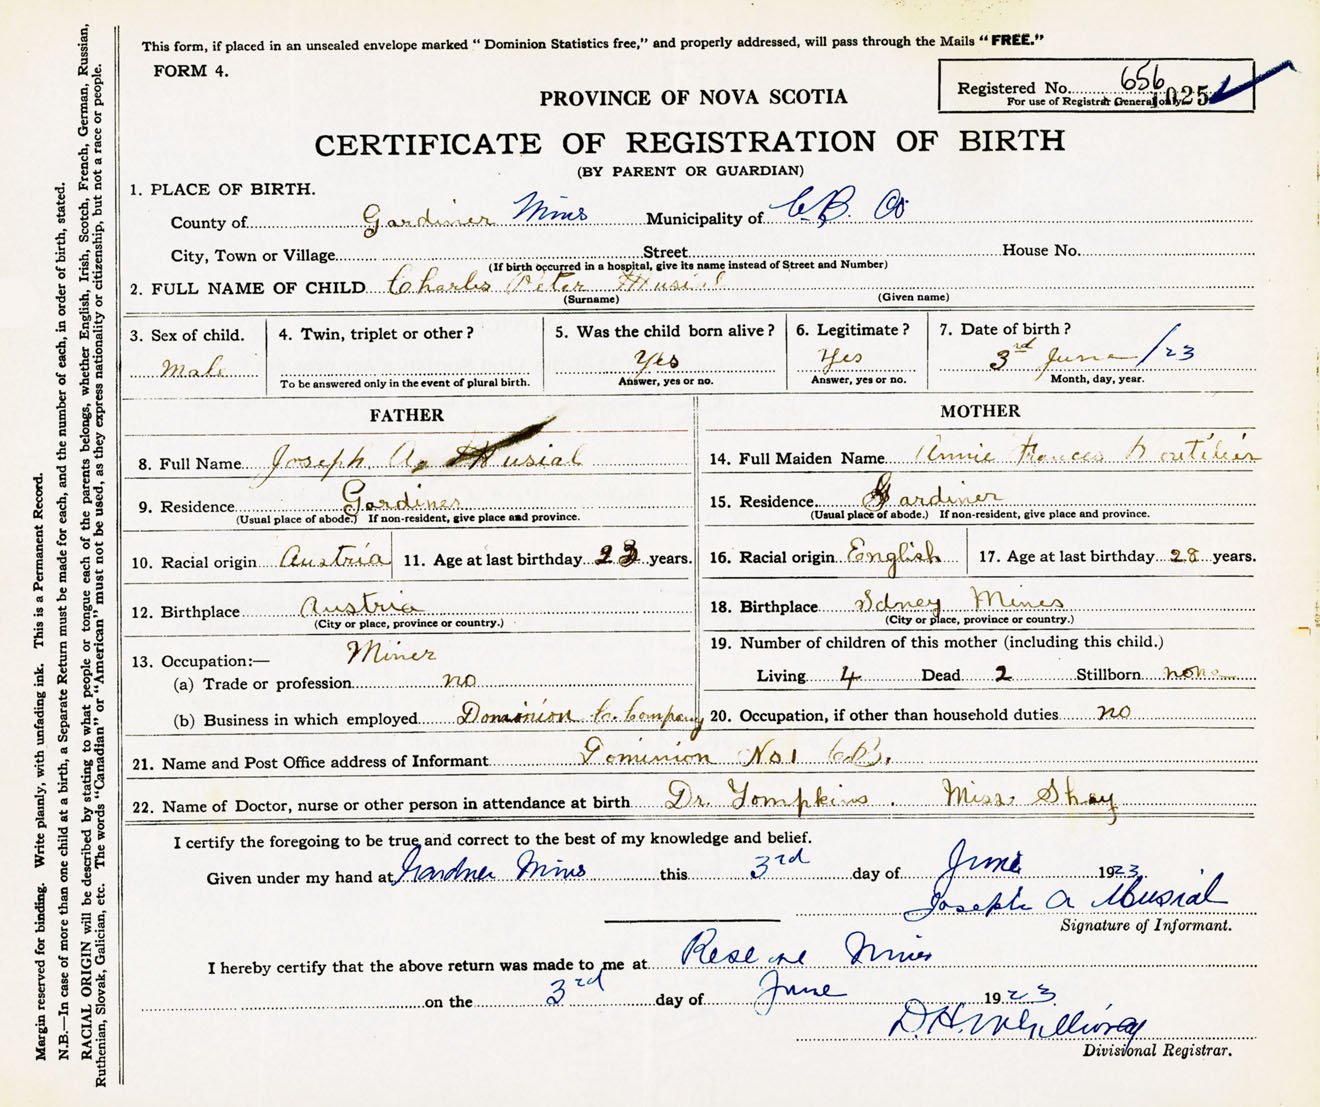 This form, if placed in an unsealed envelope marked "Dominion Statistics free," and properly addressed, will pass through the Mails "FREE."
FORM 4.
Registered No. 656
For use of Registrar General only
1025
PROVINCE OF NOVA SCOTIA
CERTIFICATE OF REGISTRATION OF BIRTH
(BY PARENT OR GUARDIAN)
1. PLACE OF BIRTH.
County of Gardiner Mines Municipality of C.B. Co
City, Town or Village Street House No.
(If birth occurred in a hospital, give its name instead of Street and Number)
2. FULL NAME OF CHILD Charles Peter Musial
(Surname) (Given name)
3. Sex of child. Male
4. Twin, triplet or other?
To be answered only in the event of plural birth.
5. Was the child born alive? Yes
Answer, yes or no.
6. Legitimate? Yes
Answer, yes or no.
7. Date of birth? 3rd June / 23
Month, day, year.
FATHER
8. Full Name Joseph A. Musial
9. Residence Gardiner
(Usual place of abode.) If non-resident, give place and province.
10. Racial origin Austria 11. Age at last birthday 23 years.
12. Birthplace Austria
(City or place, province or country.)
13. Occupation:— Miner
(a) Trade or profession no
(b) Business in which employed Dominion C. Company
MOTHER
14. Full Maiden Name Annie Frances Boutilier
15. Residence Gardiner
(Usual place of abode.) If non-resident, give place and province.
16. Racial origin English 17. Age at last birthday 28 years.
18. Birthplace Sdney Mines
(City or place, province or country.)
19. Number of children of this mother (including this child.)
Living 4 Dead 2 Stillborn none
20. Occupation, if other than household duties no
21. Name and Post Office address of Informant Dominion No 1 C.B.
22. Name of Doctor, nurse or other person in attendance at birth Dr. Tompkins. Miss Shay
I certify the foregoing to be true and correct to the best of my knowledge and belief.
Given under my hand at Gardner Mines this 3rd day of June 1923
Joseph A Musial
Signature of Informant.
I hereby certify that the above return was made to me at Reserve Mines
on the 3rd day of June 1923
D.H. McGillivray
Divisional Registrar.
Margin reserved for binding. Write plainly, with unfading ink. This is a Permanent Record.
N.B.—In case of more than one child at a birth, a Separate Return must be made for each, and the number of each, in order of birth, stated.
RACIAL ORIGIN will be described by stating to what people or tongue each of the parents belongs, whether English, Irish, Scotch, French, German, Russian,
Ruthenian, Slovak, Galician, etc. The words "Canadian" or "American" must not be used, as they express nationality or citizenship, but not a race or people.